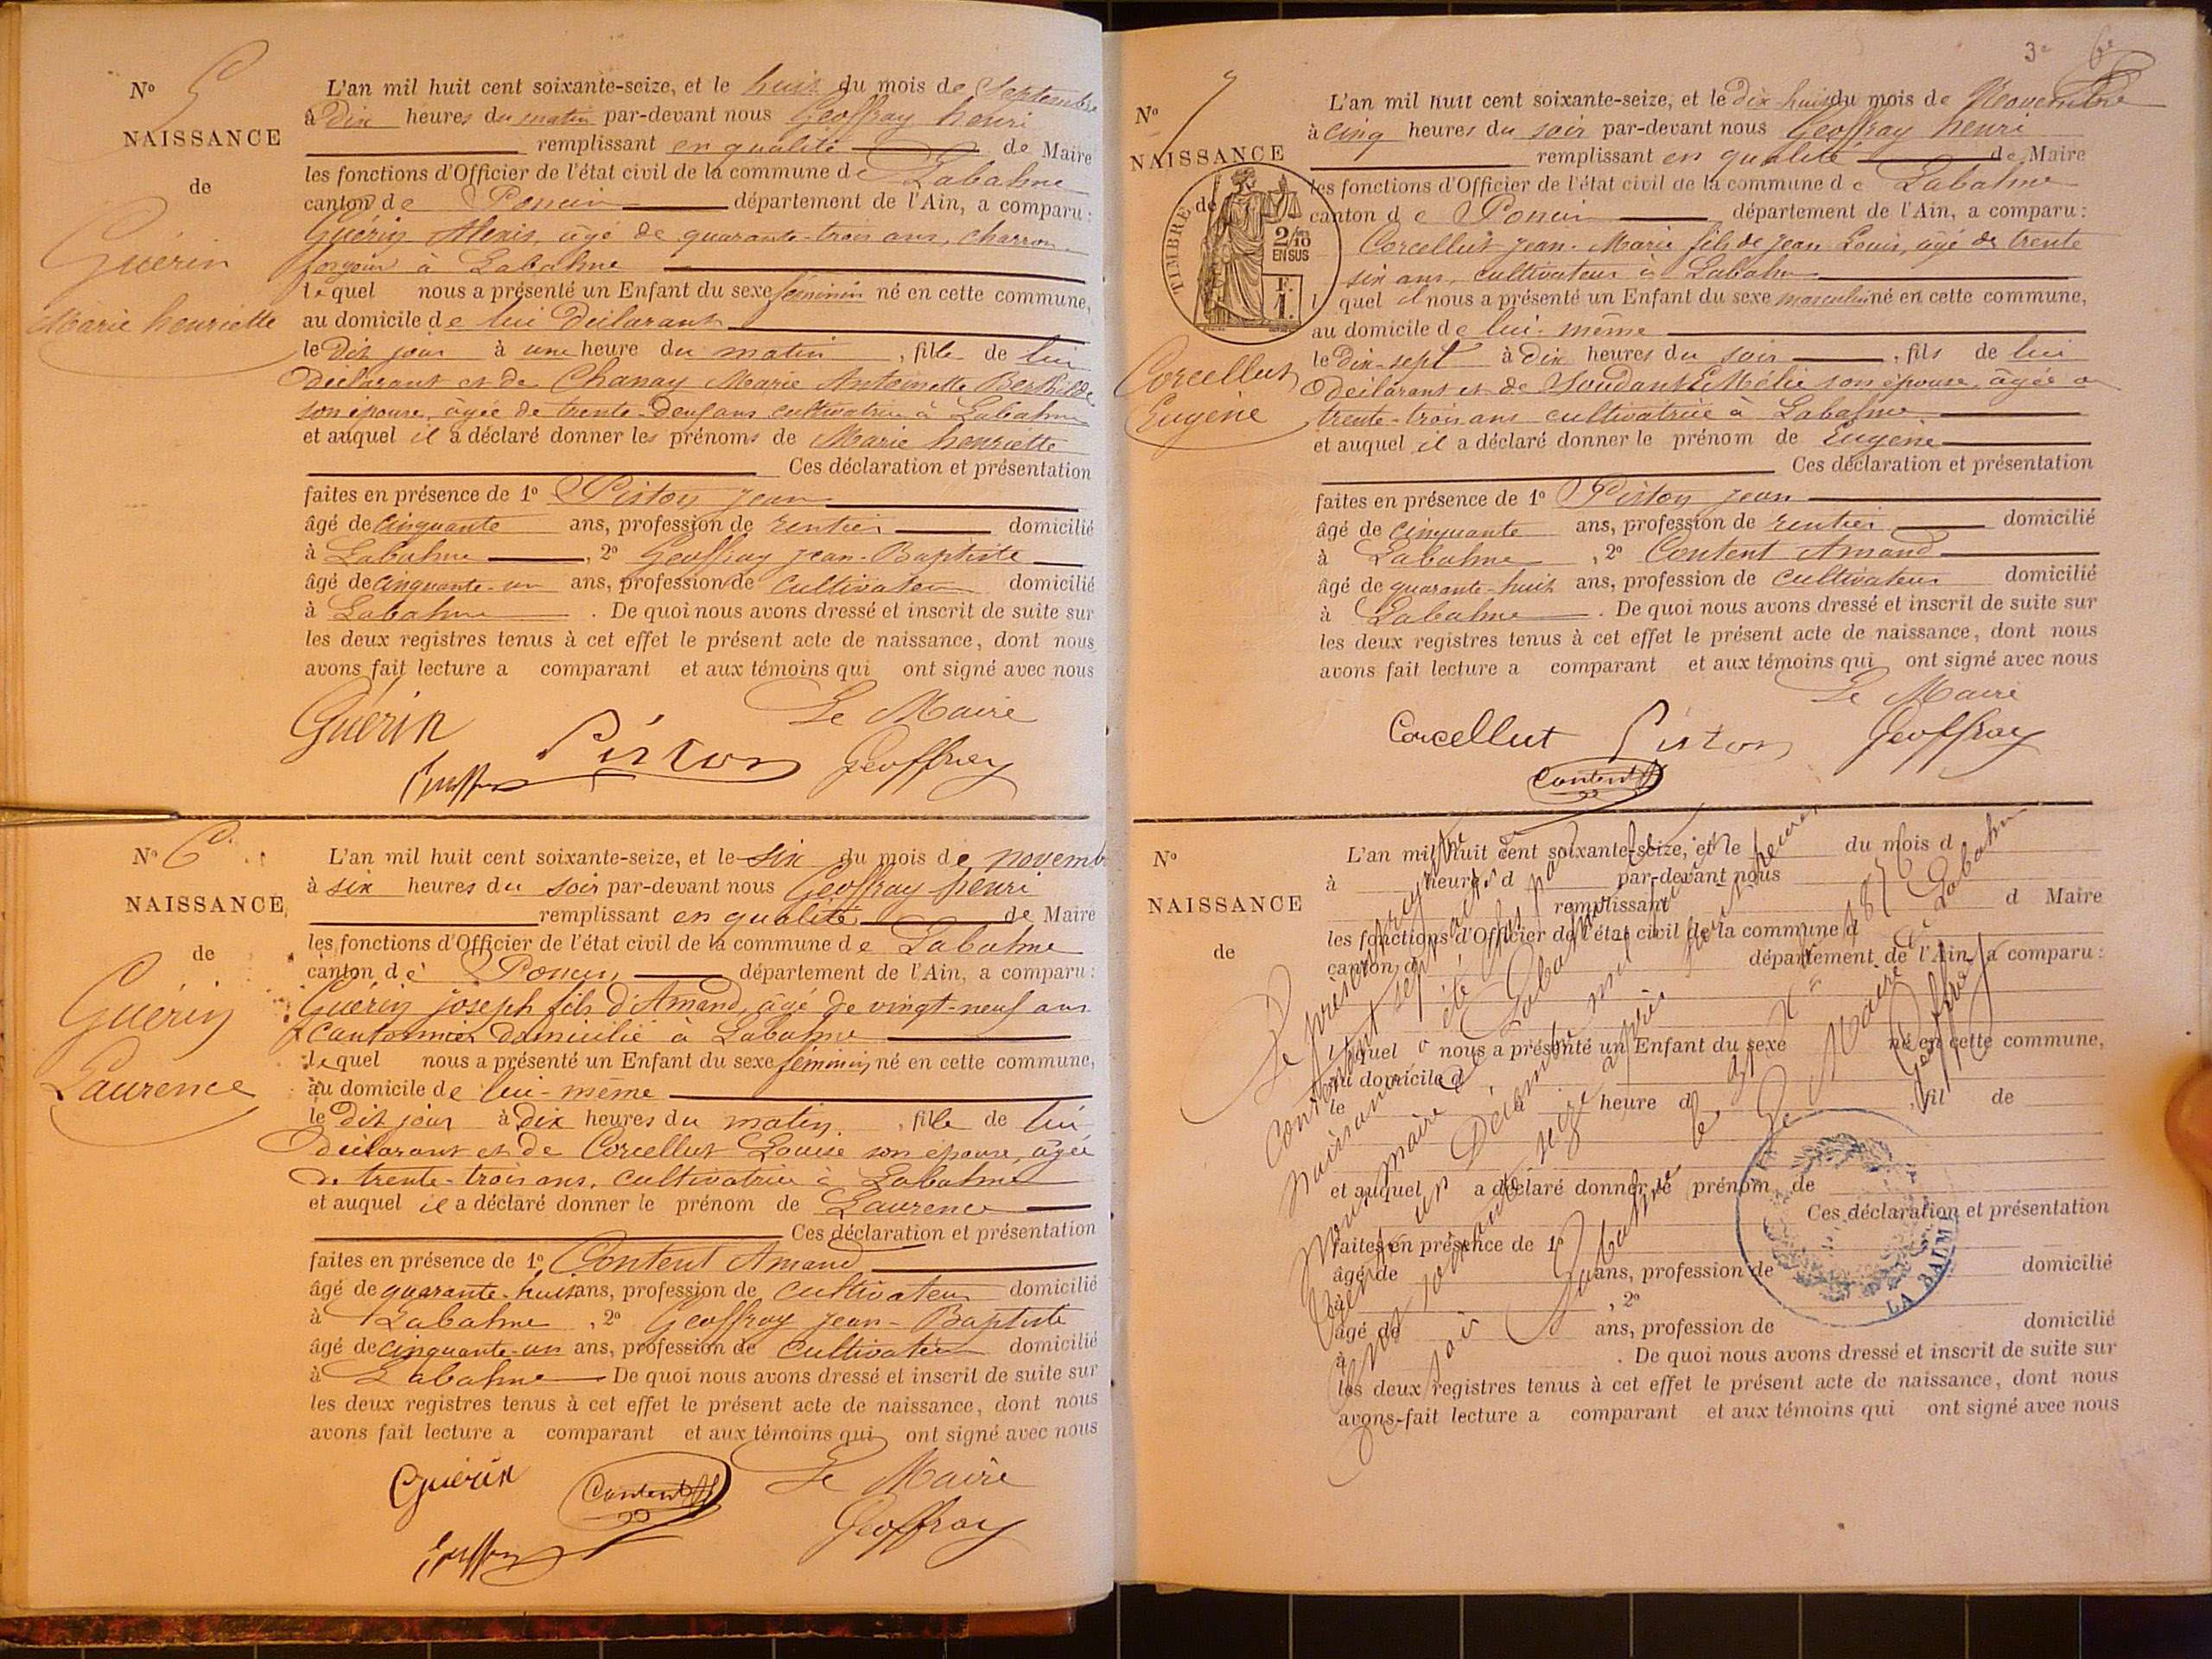 N° 5
NAISSANCE
de
Guérin
Marie henriette
L'an mil huit cent soixante-seize, et le huit du mois de Septembre
à Dix heures du matin par-devant nous Geoffray henri
remplissant en qualité de Maire
les fonctions d'Officier de l'état civil de la commune de Labalme
canton de Poncin département de l'Ain, a comparu :
Guérin Alexis, âgé de quarante-trois ans, charron
forgeur à Labalme
lequel nous a présenté un Enfant du sexe féminin né en cette commune,
au domicile de lui Déclarant
le Dit jour à une heure du matin , fille de lui
Déclarant et de Chanay Marie Antoinette Berthilde
son épouse, âgée de trente-deux ans cultivatrice à Labalme
et auquel il a déclaré donner les prénoms de Marie henriette
Ces déclaration et présentation
faites en présence de 1° Piston jean
âgé de cinquante ans, profession de rentier domicilié
à Labalme , 2° Geoffray jean-Baptiste
âgé de cinquante-un ans, profession de cultivateur domicilié
à Labalme . De quoi nous avons dressé et inscrit de suite sur
les deux registres tenus à cet effet le présent acte de naissance, dont nous
avons fait lecture a comparant et aux témoins qui ont signé avec nous
Le Maire
Guérin Piston Geoffray
N° 6
NAISSANCE
de
Guérin
Laurence
L'an mil huit cent soixante-seize, et le six du mois de novemb
à six heures du soir par-devant nous Geoffray henri
remplissant en qualité de Maire
les fonctions d'Officier de l'état civil de la commune de Labalme
canton de Poncin département de l'Ain, a comparu :
Guérin joseph fils d'Amand, âgé de vingt-neuf ans
cantonnier domicilié à Labalme
lequel nous a présenté un Enfant du sexe féminin né en cette commune,
au domicile de lui-même
le Dit jour à Dix heures du matin , fille de lui
Déclarant et de Corcellut Louise son épouse, âgée
de trente-trois ans, cultivatrice à Labalme
et auquel il a déclaré donner le prénom de Laurence
Ces déclaration et présentation
faites en présence de 1° Content Amand
âgé de quarante-huit ans, profession de cultivateur domicilié
à Labalme , 2° Geoffray jean-Baptiste
âgé de cinquante-un ans, profession de cultivateur domicilié
à Labalme De quoi nous avons dressé et inscrit de suite sur
les deux registres tenus à cet effet le présent acte de naissance, dont nous
avons fait lecture a comparant et aux témoins qui ont signé avec nous
Guérin Content Le Maire
Geoffray
3e 6e
N° 7
NAISSANCE
de
TIMBRE
2/10
EN SUS
F.
1.
Corcellut
Eugène
L'an mil huit cent soixante-seize, et le Dix-huit du mois de Novembre
à cinq heures du soir par-devant nous Geoffray henri
remplissant en qualité de Maire
les fonctions d'Officier de l'état civil de la commune de Labalme
canton de Poncin département de l'Ain, a comparu :
Corcellut jean-Marie fils de jean Louis, âgé de trente
six ans, cultivateur à Labalme
l quel il nous a présenté un Enfant du sexe masculin né en cette commune,
au domicile de lui-même
le Dix-sept à Dix heures du soir , fils de lui
Déclarant et de Soudant Emélie son épouse, âgée de
trente-trois ans cultivatrice à Labalme
et auquel il a déclaré donner le prénom de Eugène
Ces déclaration et présentation
faites en présence de 1° Piston jean
âgé de cinquante ans, profession de rentier domicilié
à Labalme , 2° Content Amand
âgé de quarante-huit ans, profession de cultivateur domicilié
à Labalme . De quoi nous avons dressé et inscrit de suite sur
les deux registres tenus à cet effet le présent acte de naissance, dont nous
avons fait lecture a comparant et aux témoins qui ont signé avec nous
Le Maire
Corcellut Piston Geoffray
Content
N°
NAISSANCE
de
L'an mil huit cent soixante-seize, et le du mois d
à heure d par-devant nous
remplissant d Maire
les fonctions d'Officier de l'état civil de la commune d
canton d département de l'Ain, a comparu :
l quel nous a présenté un Enfant du sexe né en cette commune,
au domicile d
le à heure d , fil de
et auquel a déclaré donner le prénom de
Ces déclaration et présentation
faites en présence de 1°
âgé de ans, profession de domicilié
à , 2°
âgé de ans, profession de domicilié
à . De quoi nous avons dressé et inscrit de suite sur
les deux registres tenus à cet effet le présent acte de naissance, dont nous
avons fait lecture a comparant et aux témoins qui ont signé avec nous
Le présent registre
contenant sept actes de
naissance a été clos par
nous maire de Labalme
le trente un Décembre mil
huit cent soixante seize après
Labalme le 31 Xbre 1876
Le Maire de Labalme
Geoffray
LA BAUME